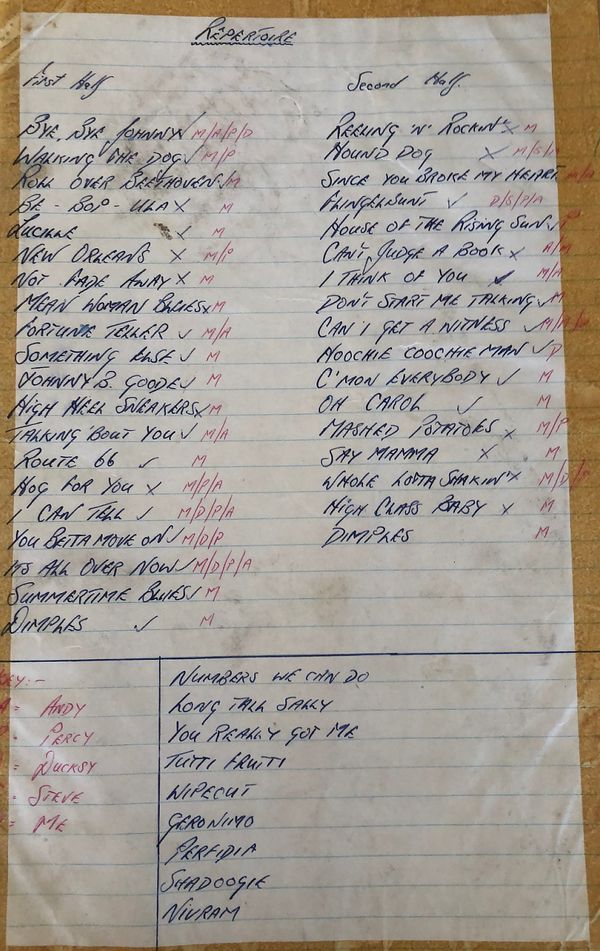 REPERTOIRE
First Half
BYE, BYE JOHNNY ✓ M/A/P/D
WALKING THE DOG ✓ M/P
ROLL OVER BEETHOVEN ✓ M
BE-BOP-ULA X M
LUCILLE X M
NEW ORLEANS X M/P
NOT FADE AWAY X M
MEAN WOMAN BLUES X M
FORTUNE TELLER ✓ M/A
SOMETHING ELSE ✓ M
JOHNNY B. GOODE ✓ M
HIGH HEEL SNEAKERS X M
TALKING 'BOUT YOU ✓ M/A
ROUTE 66 ✓ M
HOG FOR YOU X M/P/A
I CAN TELL ✓ M/D/P/A
YOU BETTA MOVE ON ✓ M/D/P
ITS ALL OVER NOW ✓ M/D/P/A
SUMMERTIME BLUES ✓ M
DIMPLES ✓ M
Second Half.
REELING 'N' ROCKIN' X M
HOUND DOG X M/S/
SINCE YOU BROKE MY HEART M/A
FLINGELBUNT ✓ D/S/P/A
HOUSE OF THE RISING SUN ✓ P
CAN'T JUDGE A BOOK X A/M
I THINK OF YOU ✓ M/A
DON'T START ME TALKING ✓ M
CAN I GET A WITNESS ✓ M/A/
HOOCHIE COOCHIE MAN ✓ D
C'MON EVERYBODY ✓ M
OH CAROL ✓ M
MASHED POTATOES X M/P
SAY MAMMA X M
WHOLE LOTTA SHAKIN' X M/D/
HIGH CLASS BABY X M
DIMPLES M
KEY:-
A = ANDY
= PERCY
= DUCKSY
= STEVE
= ME
NUMBERS WE CAN DO
LONG TALL SALLY
YOU REALLY GOT ME
TUTTI FRUITI
WIPEOUT
GERONIMO
PERFIDIA
SHADOOGIE
NIVRAM